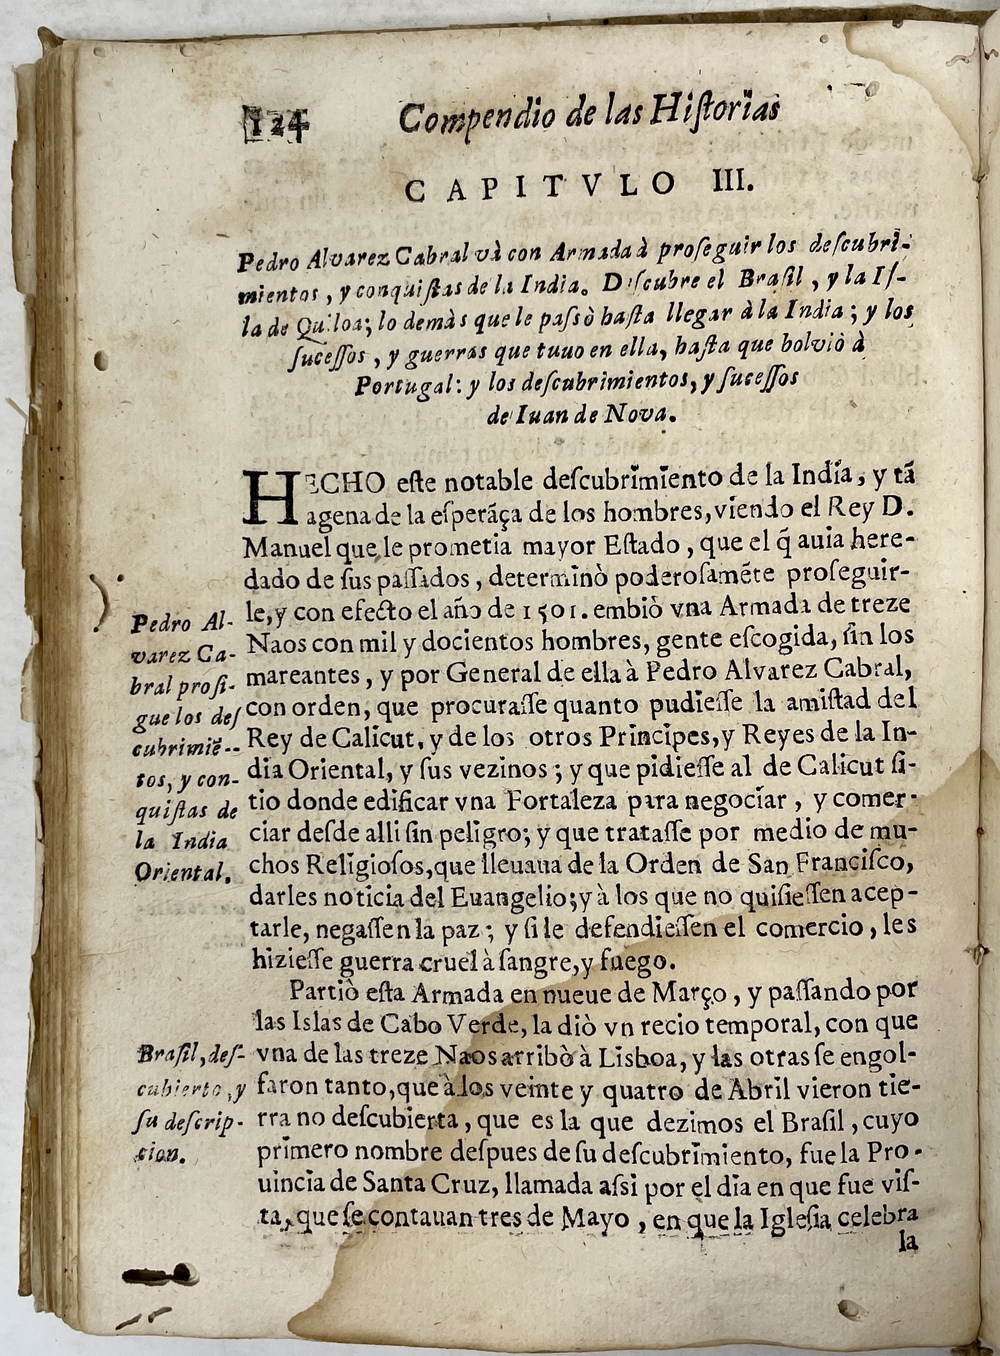 124 Compendio de las Hiſtorias
CAPITVLO III.
Pedro Alvarez Cabral và con Armada à proſeguir los deſcubri-
mientos, y conquiſtas de la India. Deſcubre el Braſil, y la Iſ-
la de Quiloa; lo demàs que le paſsò haſta llegar à la India; y los
ſuceſſos, y guerras que tuuo en ella, haſta que bolviò à
Portugal: y los deſcubrimientos, y ſuceſſos
de Iuan de Nova.
HECHO eſte notable deſcubrimiento de la India, y tã
agena de la eſperãça de los hombres, viendo el Rey D.
Manuel que le prometia mayor Eſtado, que el q̃ auia here-
dado de ſus paſſados, determinò poderoſamẽte proſeguir-
le, y con efecto el año de 1501. embiò vna Armada de treze
Naos con mil y docientos hombres, gente eſcogida, ſin los
mareantes, y por General de ella à Pedro Alvarez Cabral,
con orden, que procuraſſe quanto pudieſſe la amiſtad del
Rey de Calicut, y de los otros Principes, y Reyes de la In-
dia Oriental, y ſus vezinos; y que pidieſſe al de Calicut ſi-
tio donde edificar vna Fortaleza para negociar, y comer-
ciar deſde alli ſin peligro; y que trataſſe por medio de mu-
chos Religioſos, que lleuaua de la Orden de San Franciſco,
darles noticia del Euangelio; y à los que no quiſieſſen acep-
tarle, negaſſen la paz; y ſi le defendieſſen el comercio, les
hizieſſe guerra cruel à ſangre, y fuego.
Partiò eſta Armada en nueue de Março, y paſſando por
las Islas de Cabo Verde, la diò vn recio temporal, con que
vna de las treze Naos arribò à Lisboa, y las otras ſe engol-
faron tanto, que à los veinte y quatro de Abril vieron tie-
rra no deſcubierta, que es la que dezimos el Braſil, cuyo
primero nombre deſpues de ſu deſcubrimiento, fue la Pro-
uincia de Santa Cruz, llamada aſsi por el dia en que fue viſ-
ta, que ſe contauan tres de Mayo, en que la Igleſia celebra
la
Pedro Al-
varez Ca-
bral proſi-
gue los deſ
cubrimiẽ-
tos, y con-
quiſtas de
la India
Oriental.
Braſil, deſ-
cubierto, y
ſu deſcrip-
cion.